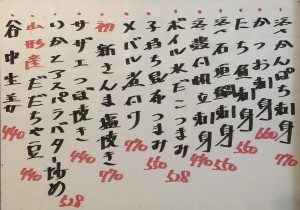 活〆かんぱち刺身 770
かつお刺身 660
たち魚刺身
活〆石垣鯛刺身 770
活〆豊円帆立刺身 440
ボイル水だこつまみ 528
子持ち昆布つまみ 550
メバル煮付 770
初 新さんま塩焼き 770
サザエつぼ焼き 440
いかとアスパラバター炒め 528
山形産だだちゃ豆 440
谷中生姜 440